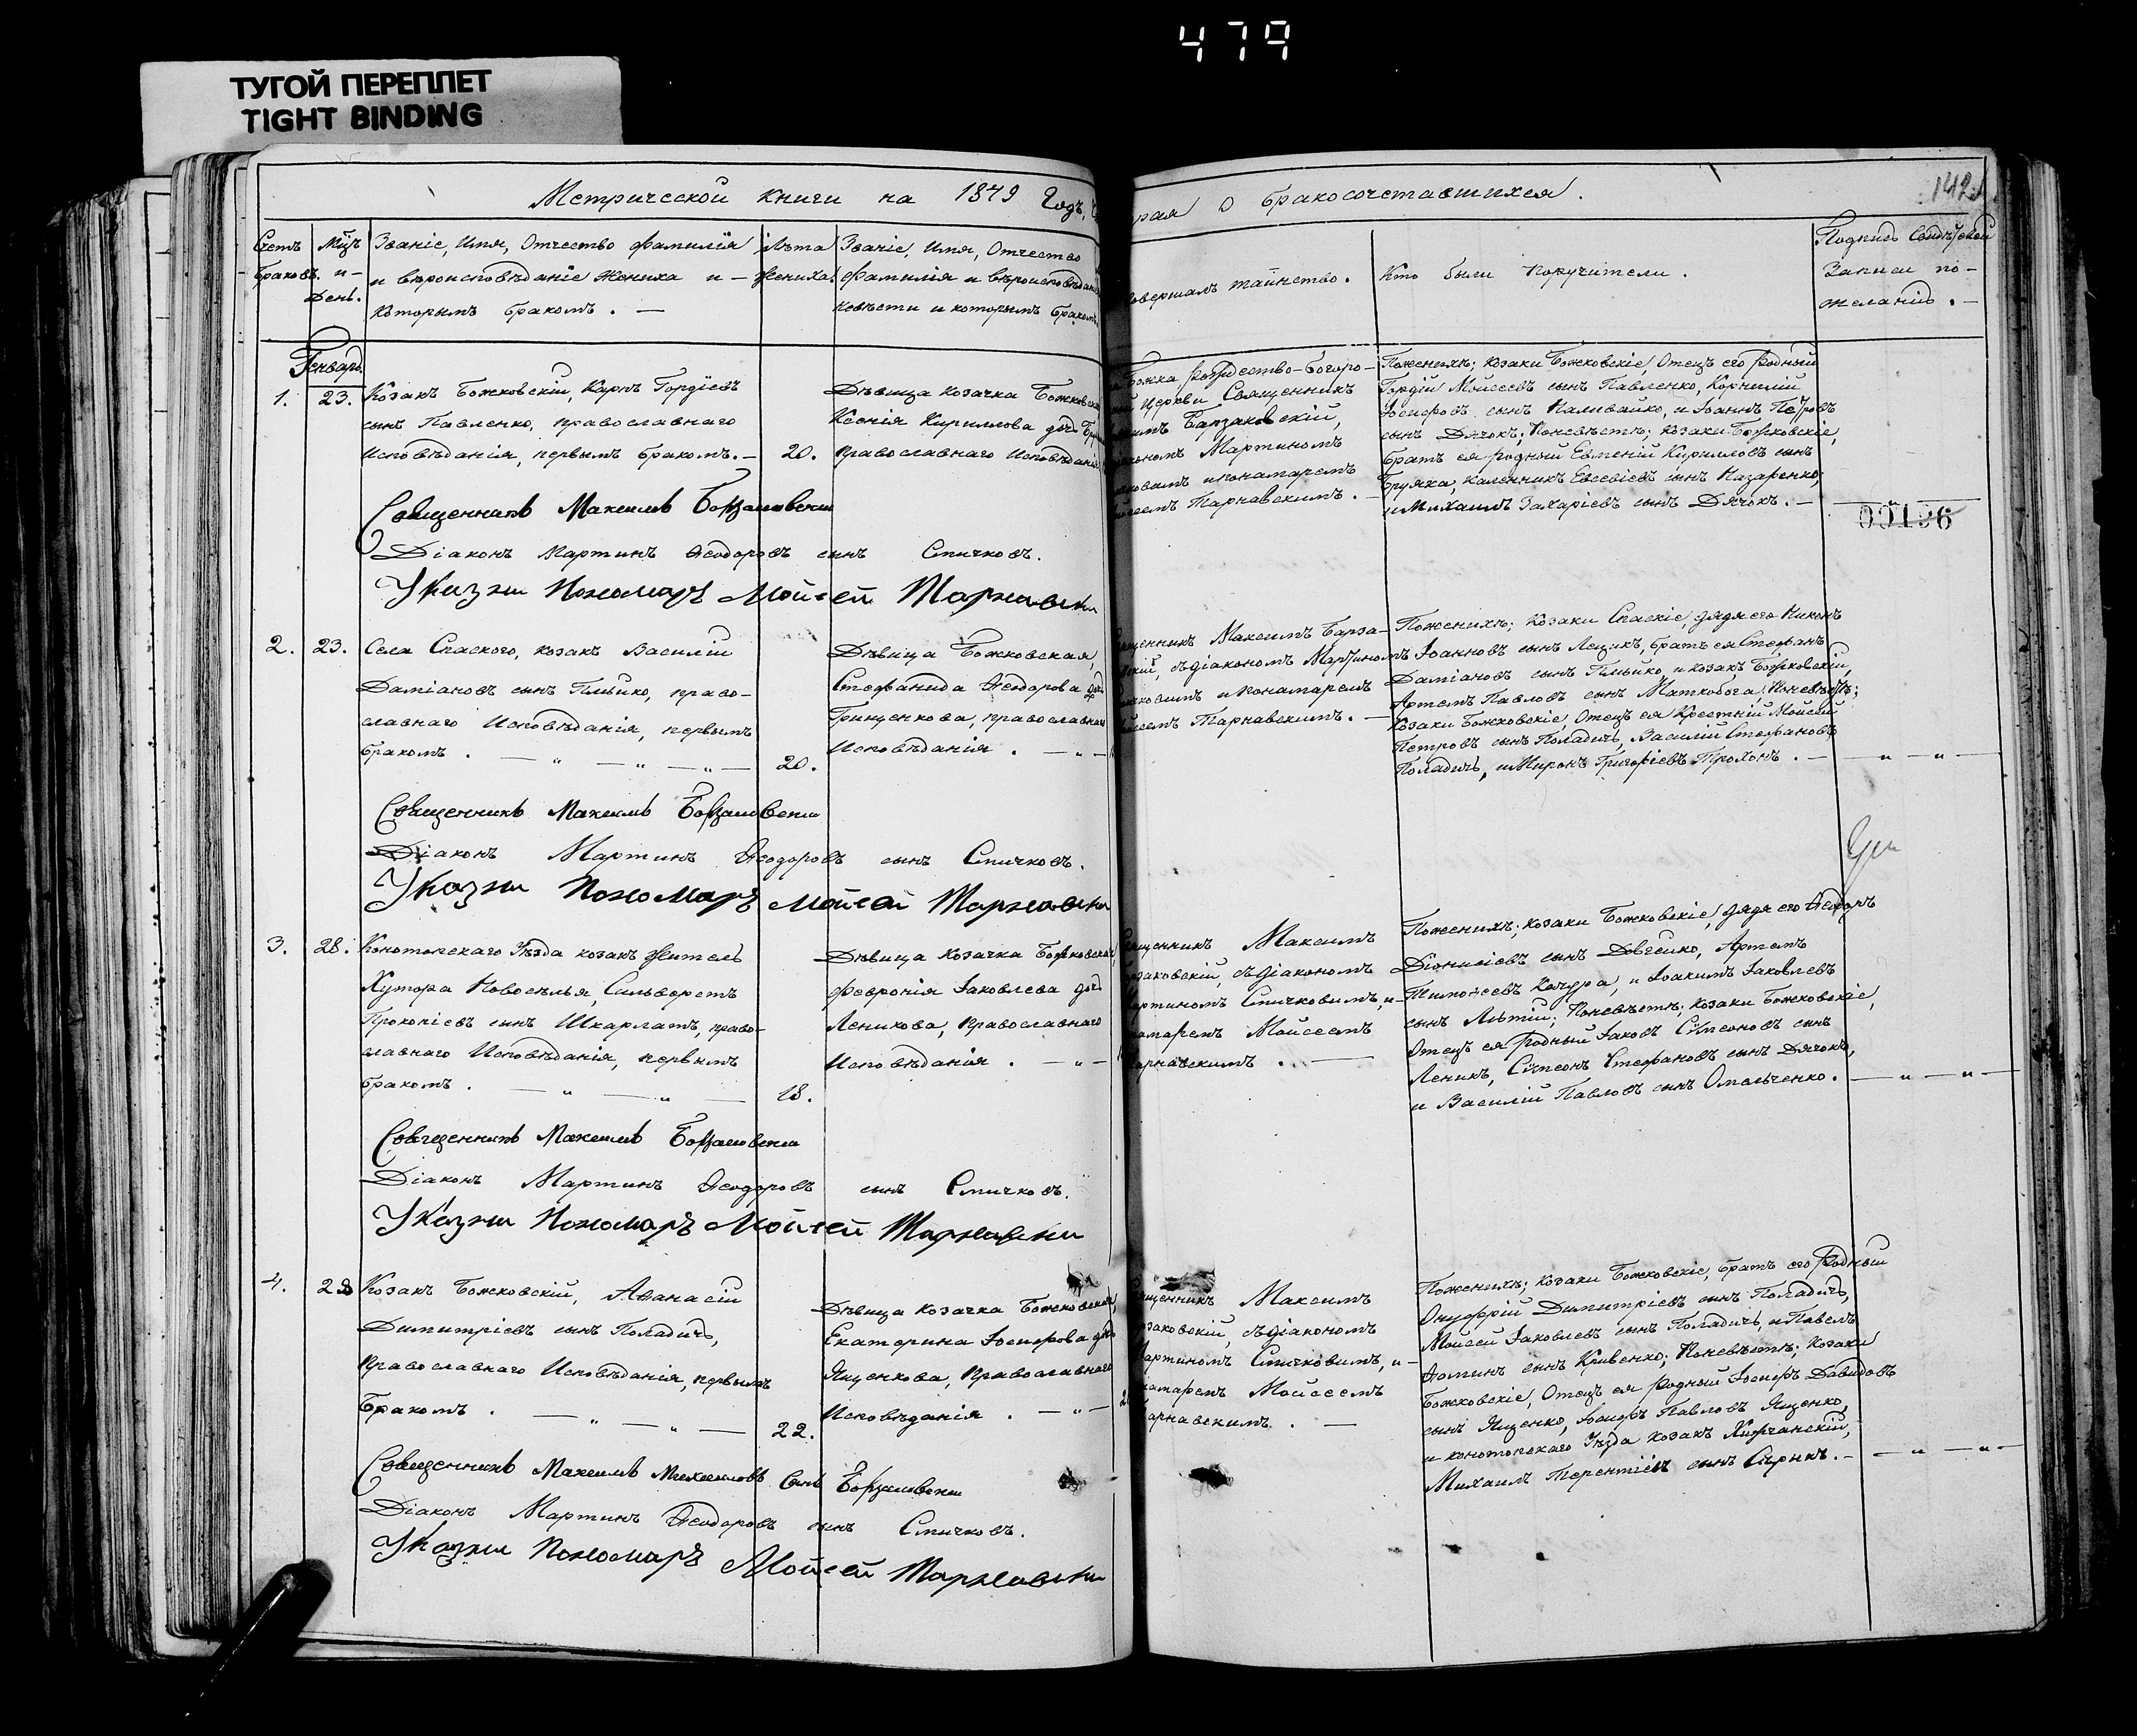 479
ТУГОЙ ПЕРЕПЛЕТ
TIGHT BINDING
Метрической книги на 1879 Годъ,
рая о бракосочетавшихся.
142
Счетъ браковъ.
Мцъ и день.
Званіе, Имя, Отчество фамилія
и вѣроисповѣданіе жениха и
которымъ бракомъ. —
лѣта жениха.
Званіе, Имя, Отчество
фамилія и вѣроисповѣдан
невѣсти и которымъ бракомъ
совершалъ таинство.
Кто были поручители.
Подпись свидѣ
записи по-
желанію. —
Генварь
1. 23.
Козакъ Божковскій, Карпъ Гордіевъ
сынъ Павленко, православнаго
Исповѣданія, первымъ бракомъ. — 20.
Дѣвица козачка Божковск
Ксенія Кириллова дочь
православнаго Исповѣданія
Божка Рождество-Богоро-
ой церкви Священникъ
Барзаковскій,
кономъ Мартиномъ
ковымъ и понамаремъ
сеемъ Тарнавскимъ. —
Поженихѣ; козаки Божковскіе, Отецъ его родный
Гордій Мойсеевъ сынъ Павленко, Корнилій
Іосифовъ сынъ Наливайко, и Іоаннъ Петровъ
сынъ Дячокъ; Поневѣстѣ; козаки Божковскіе,
братъ ея родный Евгеній Кирилловъ сынъ
Бруяка, Каленникъ Евсевіевъ сынъ Назаренко,
и Михаилъ Захаріевъ сынъ Дячокъ. —
00196
Священникъ Максимъ Барзаковскій
Діаконъ Мартинъ Ѳеодоровъ сынъ Спичковъ.
Указни Пономарь Мойсей Тарнавски
2. 23.
Села Спаского, козакъ Василій
Даміановъ сынъ Пмыйко, право-
славнаго Исповѣданія, первымъ
бракомъ. — „ — „ — „ — 20.
Дѣвица Божковская,
Стефанида Ѳеодорова дочь
Грищенкова, православнаго
Исповѣданія. — „ —
щенникъ Максимъ Барза-
скій, съ діакономъ Мартиномъ
ичковимъ и понамаремъ
йсеемъ Тарнавскимъ. —
Поженихѣ; козаки Спаскіе, дядя его Никонъ
Іоанновъ сынъ Лещикъ, братъ ея Стефанъ
Даміановъ сынъ Пмыйко, и козакъ Божковскій,
Артемъ Павловъ сынъ Маткобога; Поневѣстѣ;
Козаки Божковскіе, Отецъ ея Крестній Мойсей
Петровъ сынъ Поладичъ, Василій Стефановъ
Поладичъ, и Миронъ Григоріевъ Трохонъ. —
Священникъ Максимъ Барзаковскій
Діаконъ Мартинъ Ѳеодоровъ сынъ Спичковъ.
Указни Пономарь Мойсей Тарнавски
3. 28.
Конотопскаго Уѣзда козакъ житель
Хутора Новоселья, Сильверстъ
Прокопіевъ сынъ Шкарлатъ, право-
славнаго Исповѣданія, первымъ
бракомъ. — „ — „ — 18.
Дѣвица козачка Божковская,
Февронія Іаковлева дочь
Леникова, православнаго
Исповѣданія. — „ —
щенникъ Максимъ
рзаковскій, съ діакономъ
артиномъ Спичковымъ, и-
намаремъ Мойсеемъ
арнавскимъ. —
Поженихѣ; козаки Божковскіе, дядя его Ѳеодоръ
Діонисіевъ сынъ Довгейко, Артемъ
Тимоѳеевъ Качура, и Іоакимъ Іаковлевъ
сынъ Лѣтій; Поневѣстѣ; козаки Божковскіе,
Отецъ ея родный Іаковъ Симеоновъ сынъ
Леникъ, Симеонъ Стефановъ сынъ Дячокъ,
и Василій Павловъ сынъ Омельченко. — „ — „ —
Священникъ Максимъ Барзаковскій
Діаконъ Мартинъ Ѳеодоровъ сынъ Спичковъ.
Указни Пономарь Мойсей Тарнавски
4. 28
Козакъ Божковскій, Аѳанасій
Димитріевъ сынъ Поладичъ,
Православнаго Исповѣданія, первымъ
Бракомъ. — „ — „ — 22.
Дѣвица козачка Божковская,
Екатерина Іосифова дочь
Яценкова, Православнаго
Исповѣданія. — „ —
щенникъ Максимъ
рзаковскій, съ діакономъ
артиномъ Спичковымъ, и-
намаремъ Мойсеемъ
арнавскимъ. —
Поженихѣ; козаки Божковскіе, братъ его родный
Онуфрій Димитріевъ сынъ Поладичъ,
Мойсей Іаковлевъ сынъ Поладичъ, и Павелъ
Ѳоминъ сынъ Кривенко; Поневѣстѣ; козаки
Божковскіе, Отецъ ея родный Іосифъ Давидовъ
сынъ Яценко, Іосифъ Павловъ Яценко,
и конотопскаго Уѣзда козакъ
Михаилъ Терентіевъ сынъ Сѣрикъ. — „ — „ —
Священникъ Максимъ Михаиловъ Сынъ Барзаковскій
Діаконъ Мартинъ Ѳеодоровъ сынъ Спичковъ.
Указни Пономарь Мойсей Тарнавски